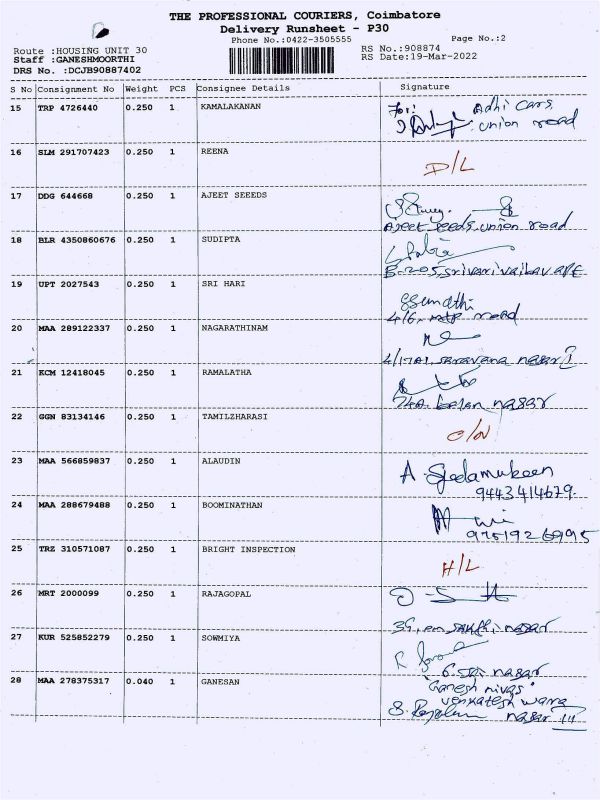 THE PROFESSIONAL COURIERS, Coimbatore
Delivery Runsheet - P30
Phone No.:0422-3505555
Page No.:2
Route :HOUSING UNIT 30
RS No.:908874
Staff :GANESHMOORTHI
RS Date:19-Mar-2022
DRS No. :DCJB90887402
S No Consignment No Weight PCS Consignee Details Signature
15 TRP 4726440 0.250 1 KAMALAKANAN For: Adhi Cars,
union road
16 SLM 291707423 0.250 1 REENA D/L
17 DDG 644668 0.250 1 AJEET SEEEDS
Ajeet seeds, union road
18 BLR 4350860676 0.250 1 SUDIPTA
B-205, srivari vaibav apt
19 UPT 2027543 0.250 1 SRI HARI
4/6, mtp road
20 MAA 289122337 0.250 1 NAGARATHINAM
4/17A1, saravana nagar
21 KCM 12418045 0.250 1 RAMALATHA
74A, balan nagar
22 GGN 83134146 0.250 1 TAMILZHARASI
23 MAA 566859837 0.250 1 ALAUDIN A.
9443414679
24 MAA 288679488 0.250 1 BOOMINATHAN
25 TRZ 310571087 0.250 1 BRIGHT INSPECTION H/L
26 MRT 2000099 0.250 1 RAJAGOPAL
nagar
27 KUR 525852279 0.250 1 SOWMIYA
6, sri nagar
28 MAA 278375317 0.040 1 GANESAN "Ganesh nivas"
venkateshwara
nagar III